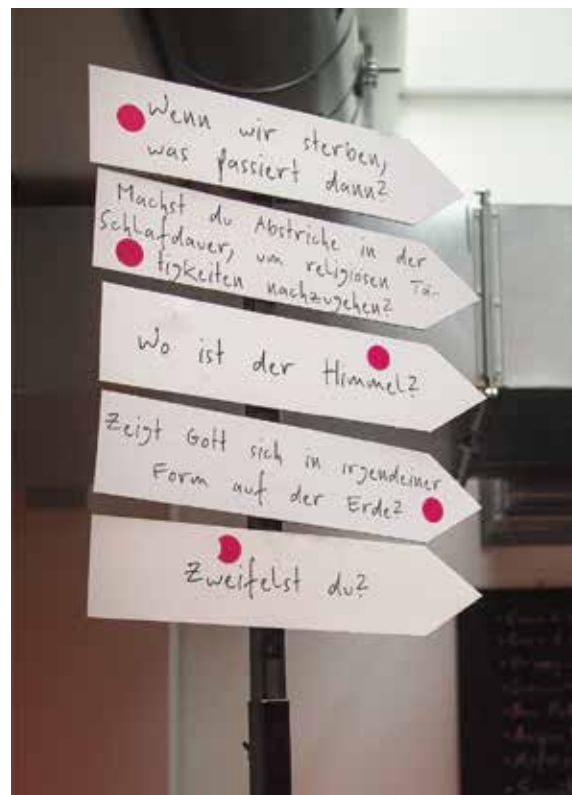 Wenn wir sterben,
was passiert dann?
Machst du Abstriche in der
Schlafdauer, um religiösen Tä-
tigkeiten nachzugehen?
Wo ist der Himmel?
Zeigt Gott sich in irgendeiner
Form auf der Erde?
Zweifelst du?